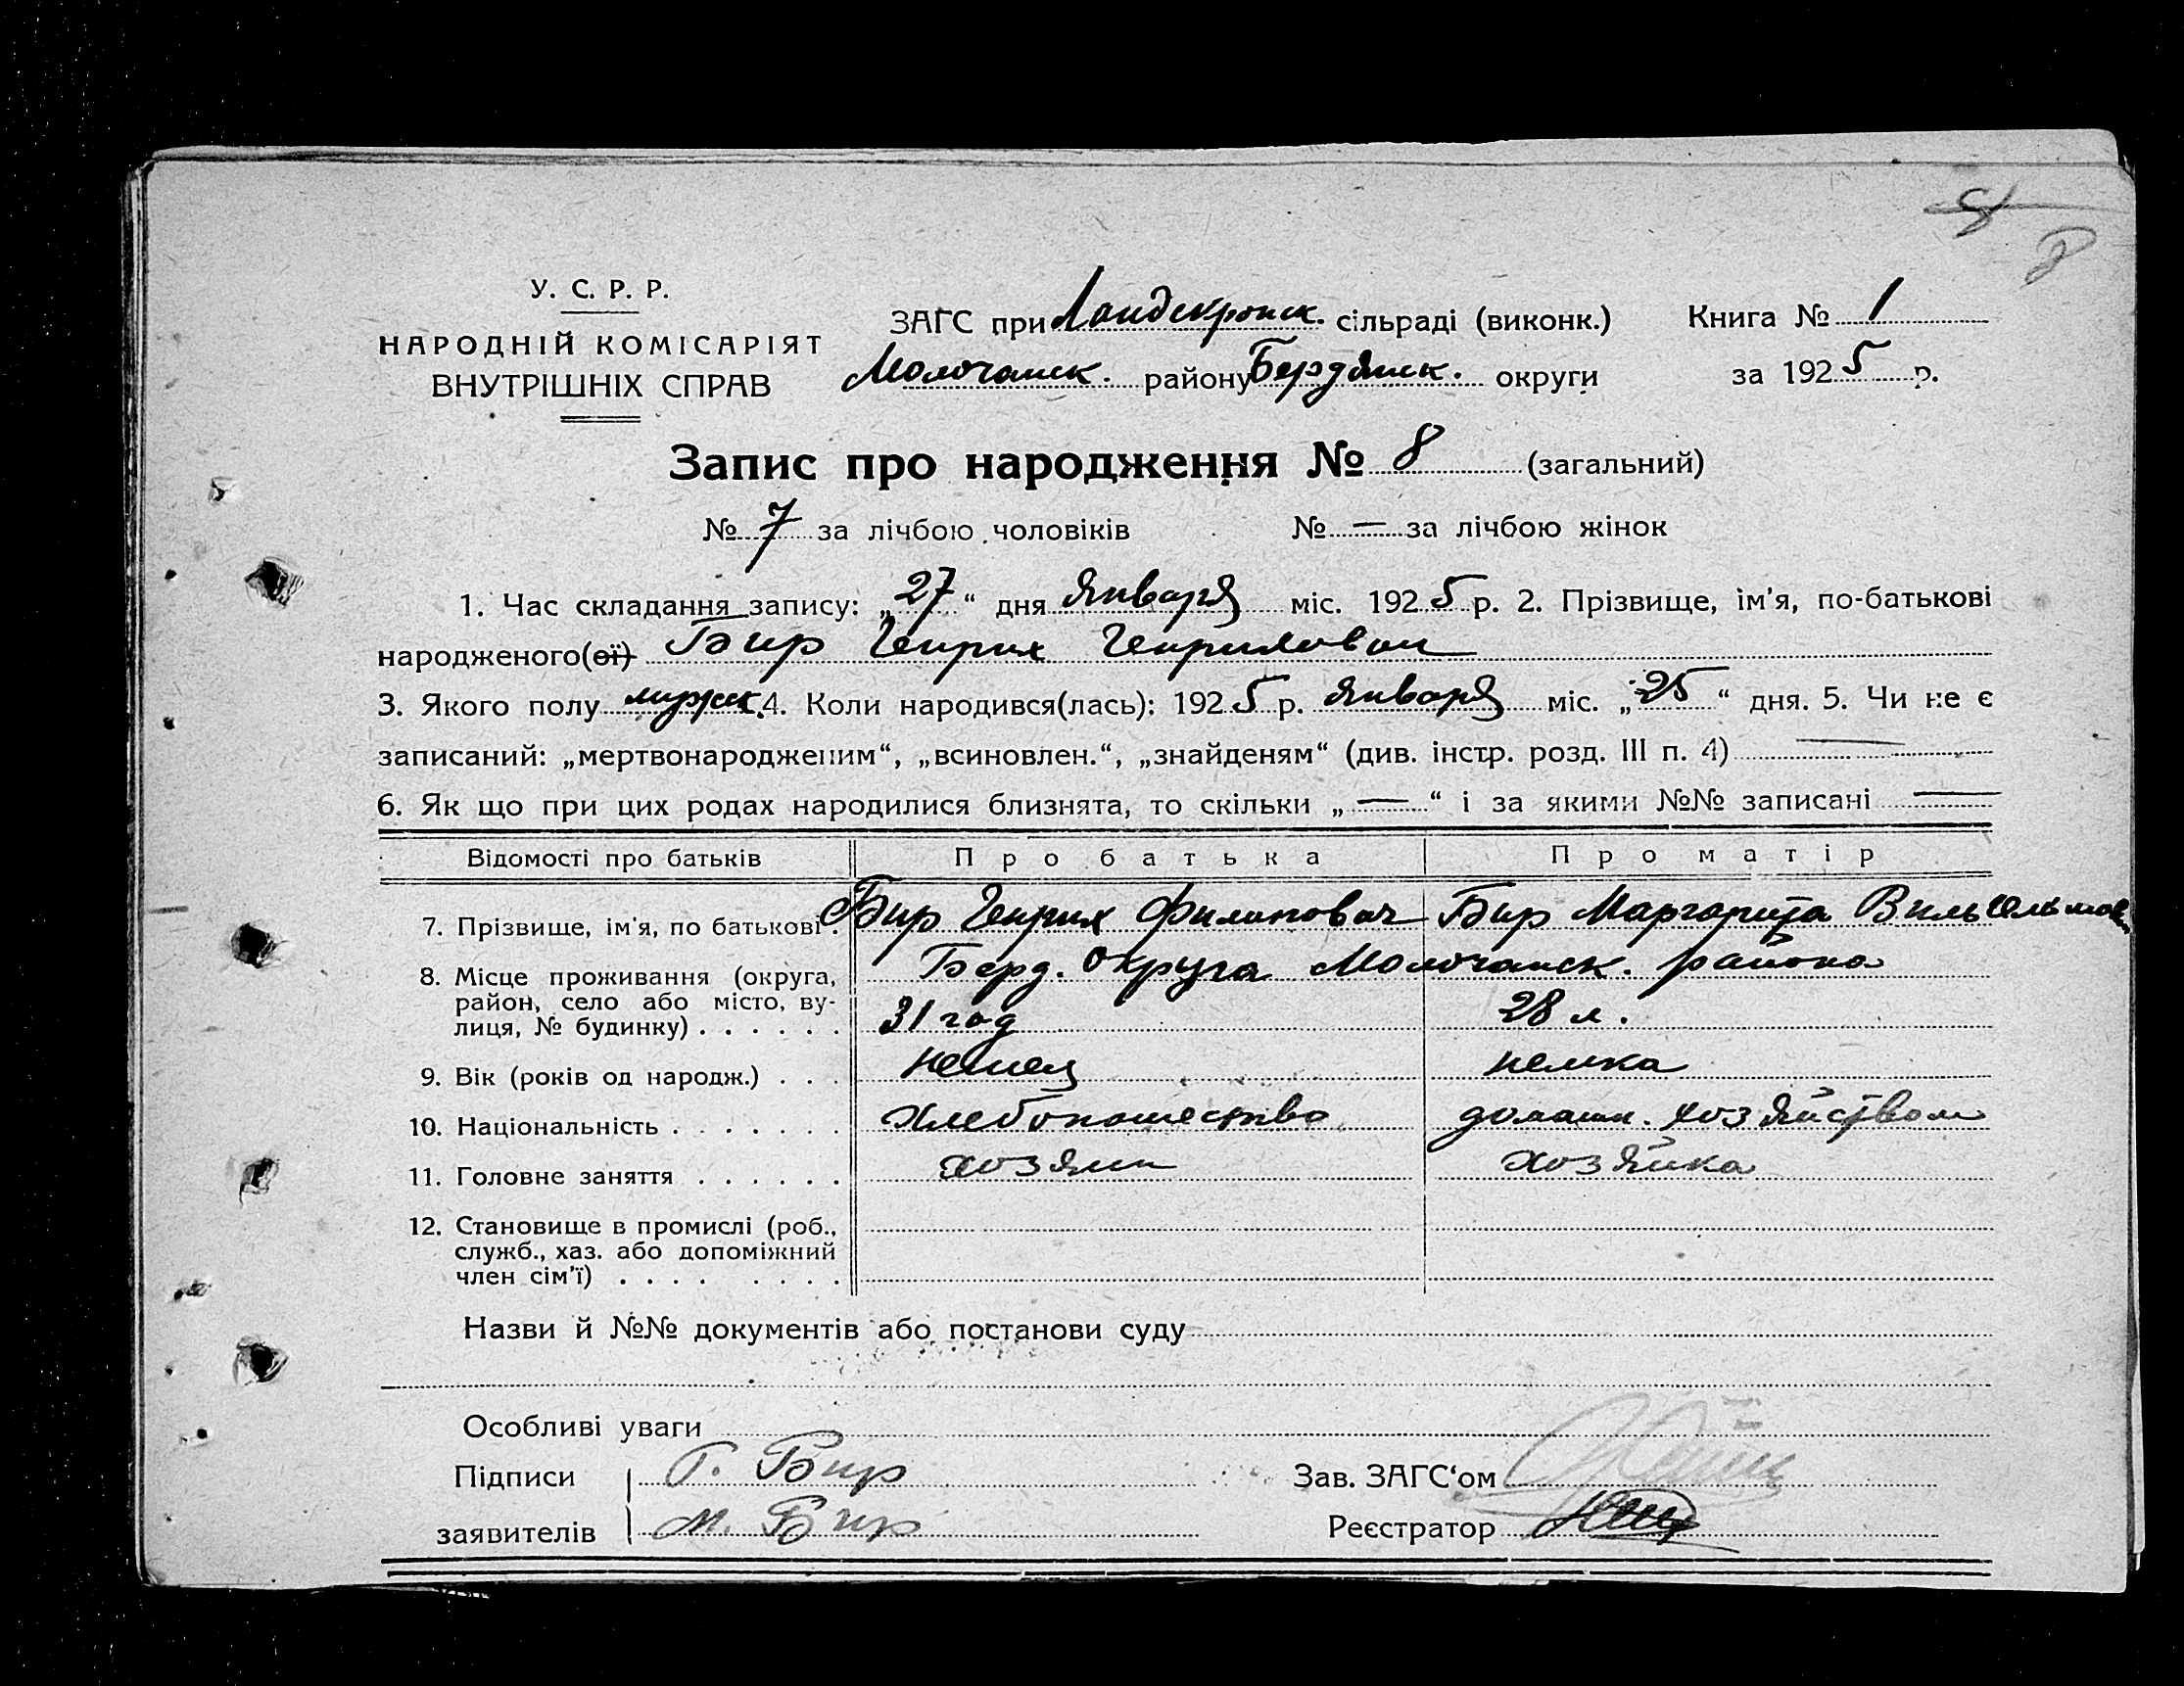 8
У. С. Р. Р.
НАРОДНІЙ КОМІСАРІЯТ
ВНУТРІШНІХ СПРАВ
ЗАГС при Ландскронск. сільраді (виконк.) Книга № 1
Молочанск. району Бердянск. округи за 1925 р.
Запис про народження № 8 (загальний)
№ 7 за лічбою чоловіків № — за лічбою жінок
1. Час складання запису: „27“ дня Января міс. 1925 р. 2. Прізвище, ім'я, по-батькові
народженого(ої) Бир Генрих Генрихович
3. Якого полу мужск. 4. Коли народився(лась): 1925 р. Января міс. „25“ дня. 5. Чи не є
записаний: „мертвонародженим“, „всиновлен.“, „знайденям“ (див. інстр. розд. III п. 4) —
6. Як що при цих родах народилися близнята, то скільки „—“ і за якими №№ записані —
Відомості про батьків Про батька Про матір
7. Прізвище, ім'я, по батькові. Бир Генрих Филипович Бир Маргарита Вильгельмов
8. Місце проживання (округа, Берд. Округа Молочанск. района
район, село або місто, ву-
лиця, № будинку) . . . . . . 31 год 28 л.
9. Вік (років од народж.) . . . немец немка
10. Національність . . . . . . . хлебопашество домашн. хозяйством
11. Головне заняття . . . . . . хозяин хозяйка
12. Становище в промислі (роб.,
служб., хаз. або допоміжний
член сім'ї) . . . . . . . .
Назви й №№ документів або постанови суду
Особливі уваги
Підписи Г. Бир Зав. ЗАГС'ом
заявителів М. Бир Реєстратор